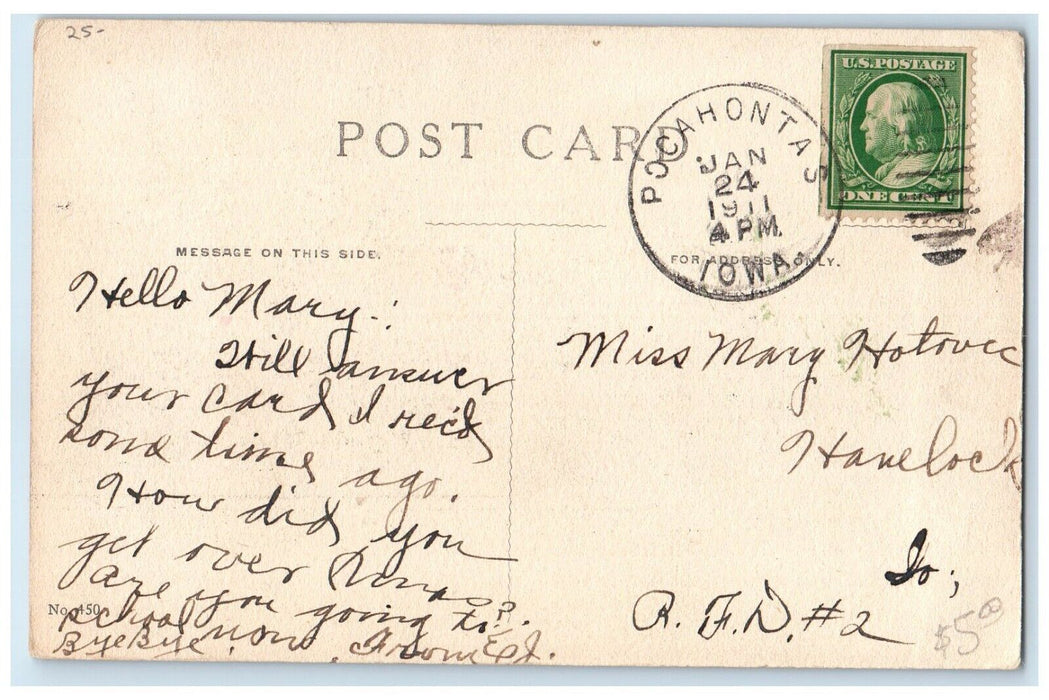 25-
U.S.POSTAGE
ONE CENT
POCAHONTAS
JAN
24
1911
4 PM
IOWA.
POST CARD.
MESSAGE ON THIS SIDE.
FOR ADDRESS ONLY.
Hello Mary:
Will answer
your card I rec'd
some time ago.
How did you
get over Xmas?
are you going to
school now?
Bye Bye. From
No. 450
Miss Mary Hotovec
Havelock
Io;
R. F. D. #2
$5.00